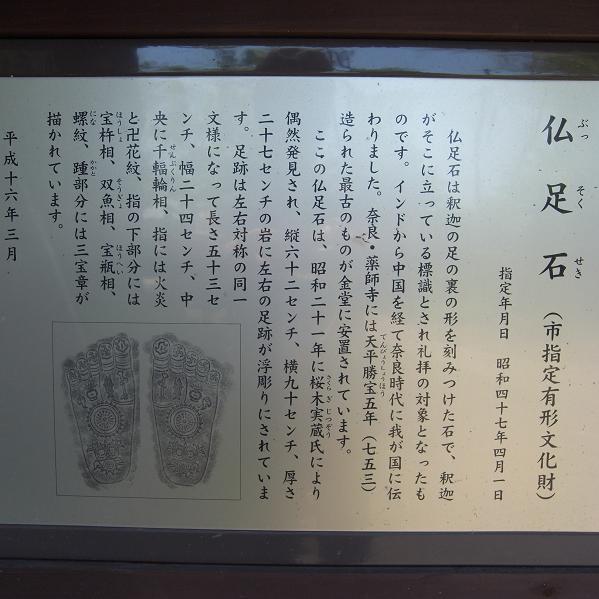 仏足石（市指定有形文化財）
ぶっ そく せき
指定年月日 昭和四十七年四月一日
仏足石は釈迦の足の裏の形を刻みつけた石で、釈迦
がそこに立っている標識とされ礼拝の対象となったも
のです。インドから中国を経て奈良時代に我が国に伝
わりました。奈良・薬師寺には天平勝宝五年（七五三）
てんぴょうしょうほう
造られた最古のものが金堂に安置されています。
この仏足石は、昭和二十一年に桜木実蔵氏により
さくらぎじつぞう
偶然発見され、縦六十二センチ、横九十センチ、厚さ
二十七センチの岩に左右の足跡が浮彫りにされていま
す。足跡は左右対称の同一
文様になって長さ五十三セ
ンチ、幅二十四センチ、中
央に千輻輪相、指には火炎
せんぷくりん
と卍花紋、指の下部分には
宝杵相、双魚相、宝瓶相、
ほうしょ そうぎょ ほうへい
螺紋、踵部分には三宝章が
にな かかと
描かれています。
平成十六年三月